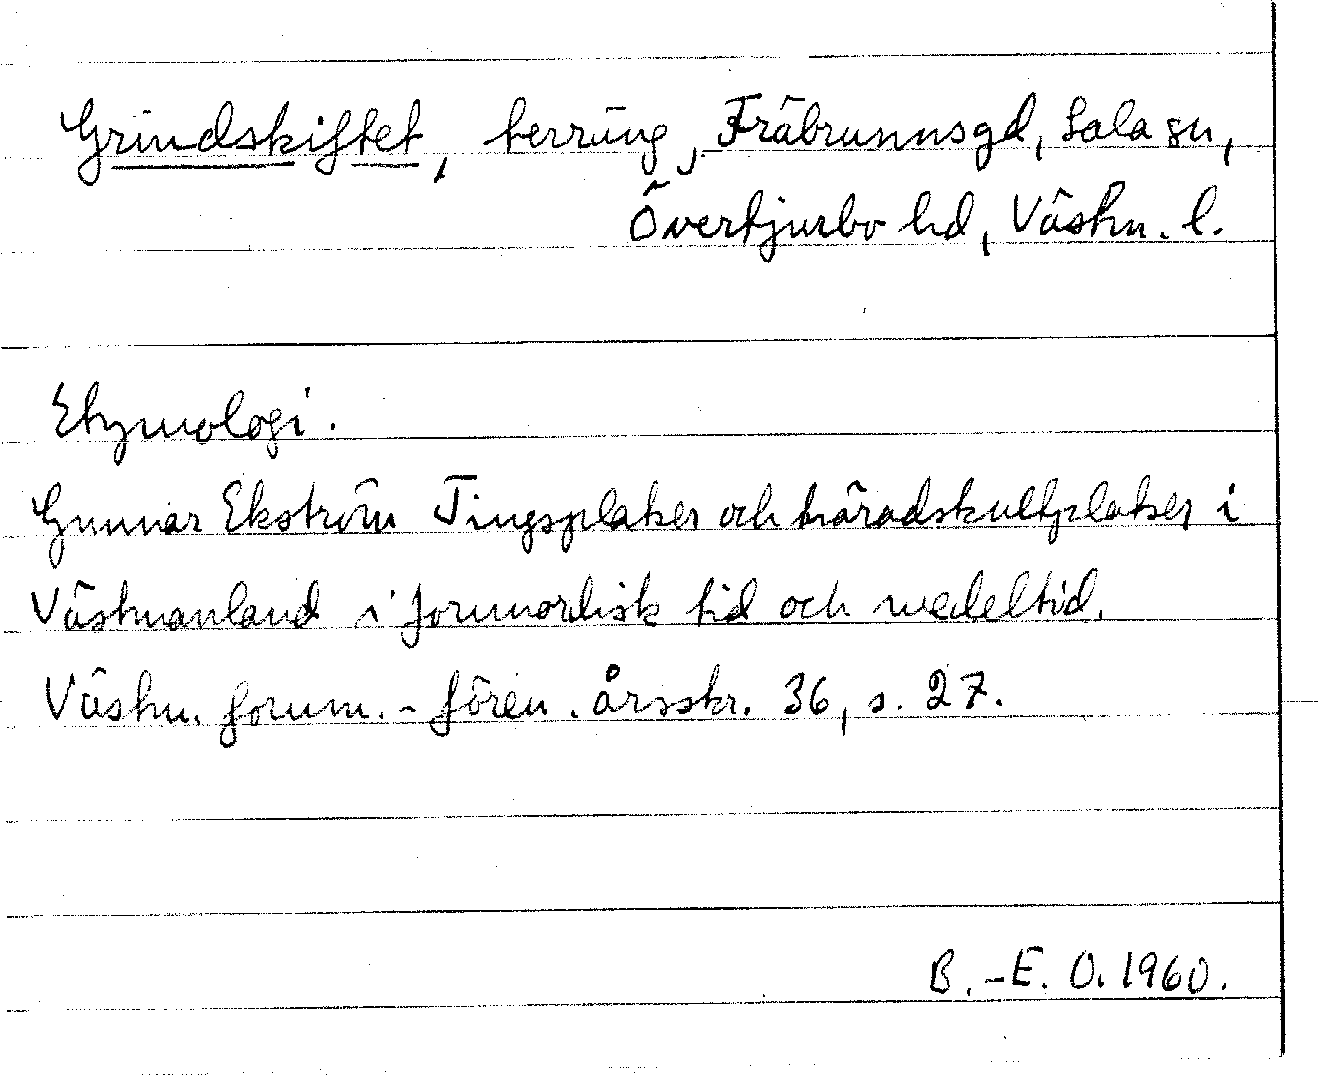 Grindskiftet, terräng, Fräbrunnsgd, Sala sn,
Övertjurbo hd, Västm. l.
Etymologi.
Gunnar Ekström Tingsplatser och häradskultplatser i
Västmanland i fornnordisk tid och medeltid.
Västm. fornm.-fören. årsskr. 36, s. 27.
B.-E. O. 1960.